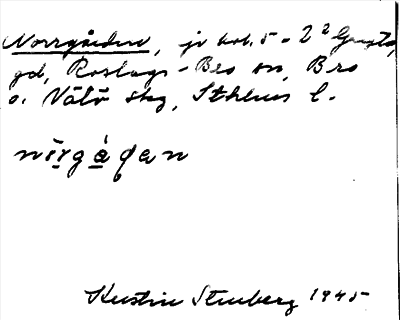 Norrgården, jr kol. 5 - 2² 
gd, Roslags-Bro sn, Bro
o. Vätö skg, Sthlms l.
nǫrgå̀dan
Kerstin Stenberg 1945